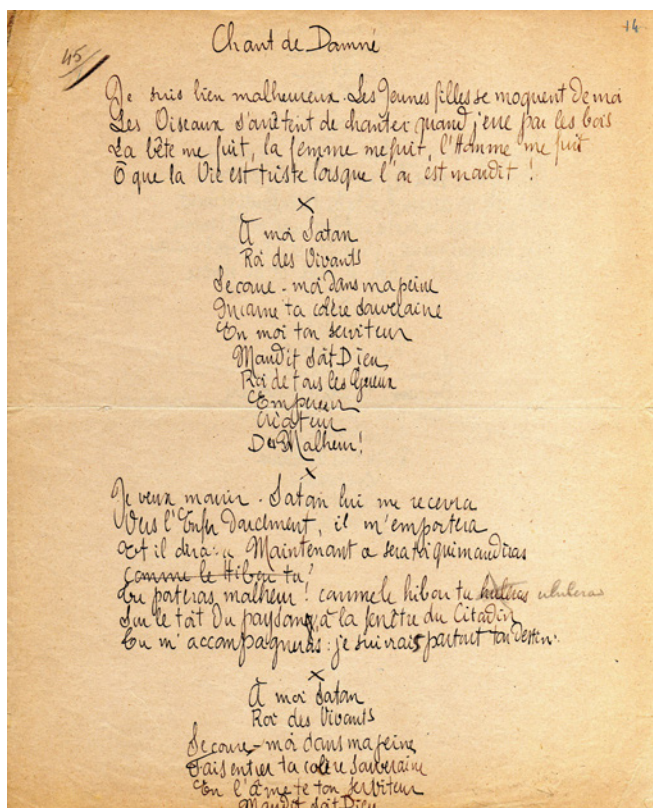 14
45
Chant de Damné
Je suis bien malheureux. Les Jeunes filles se moquent de moi
Les Oiseaux s'arrêtent de chanter quand j'erre par les bois
La bête me fuit, la femme me fuit, l'Homme me fuit
Ô que la Vie est triste lorsque l'on est maudit !
x
À moi Satan
Roi des Vivants
Secoure-moi dans ma peine
Incarne ta colère souveraine
En moi ton serviteur
Maudit soit Dieu
Roi de tous les Gueux
Empereur
Créateur
Du Malheur!
x
Je veux mourir. Satan lui me recevra
Vers l'Enfer doucement, il m'emportera
Et il dira : Maintenant ce sera toi qui maudiras
comme le Hibou tu
Tu porteras malheur! comme le hibou tu ululeras
Sur le toit du paysan, à la fenêtre du Citadin
Tu m'accompagneras : je suivrais partout ton destin.
x
À moi Satan
Roi des Vivants
Secoure-moi dans ma peine
Fais entrer ta colère souveraine
En l'âme de ton serviteur
Maudit soit Dieu